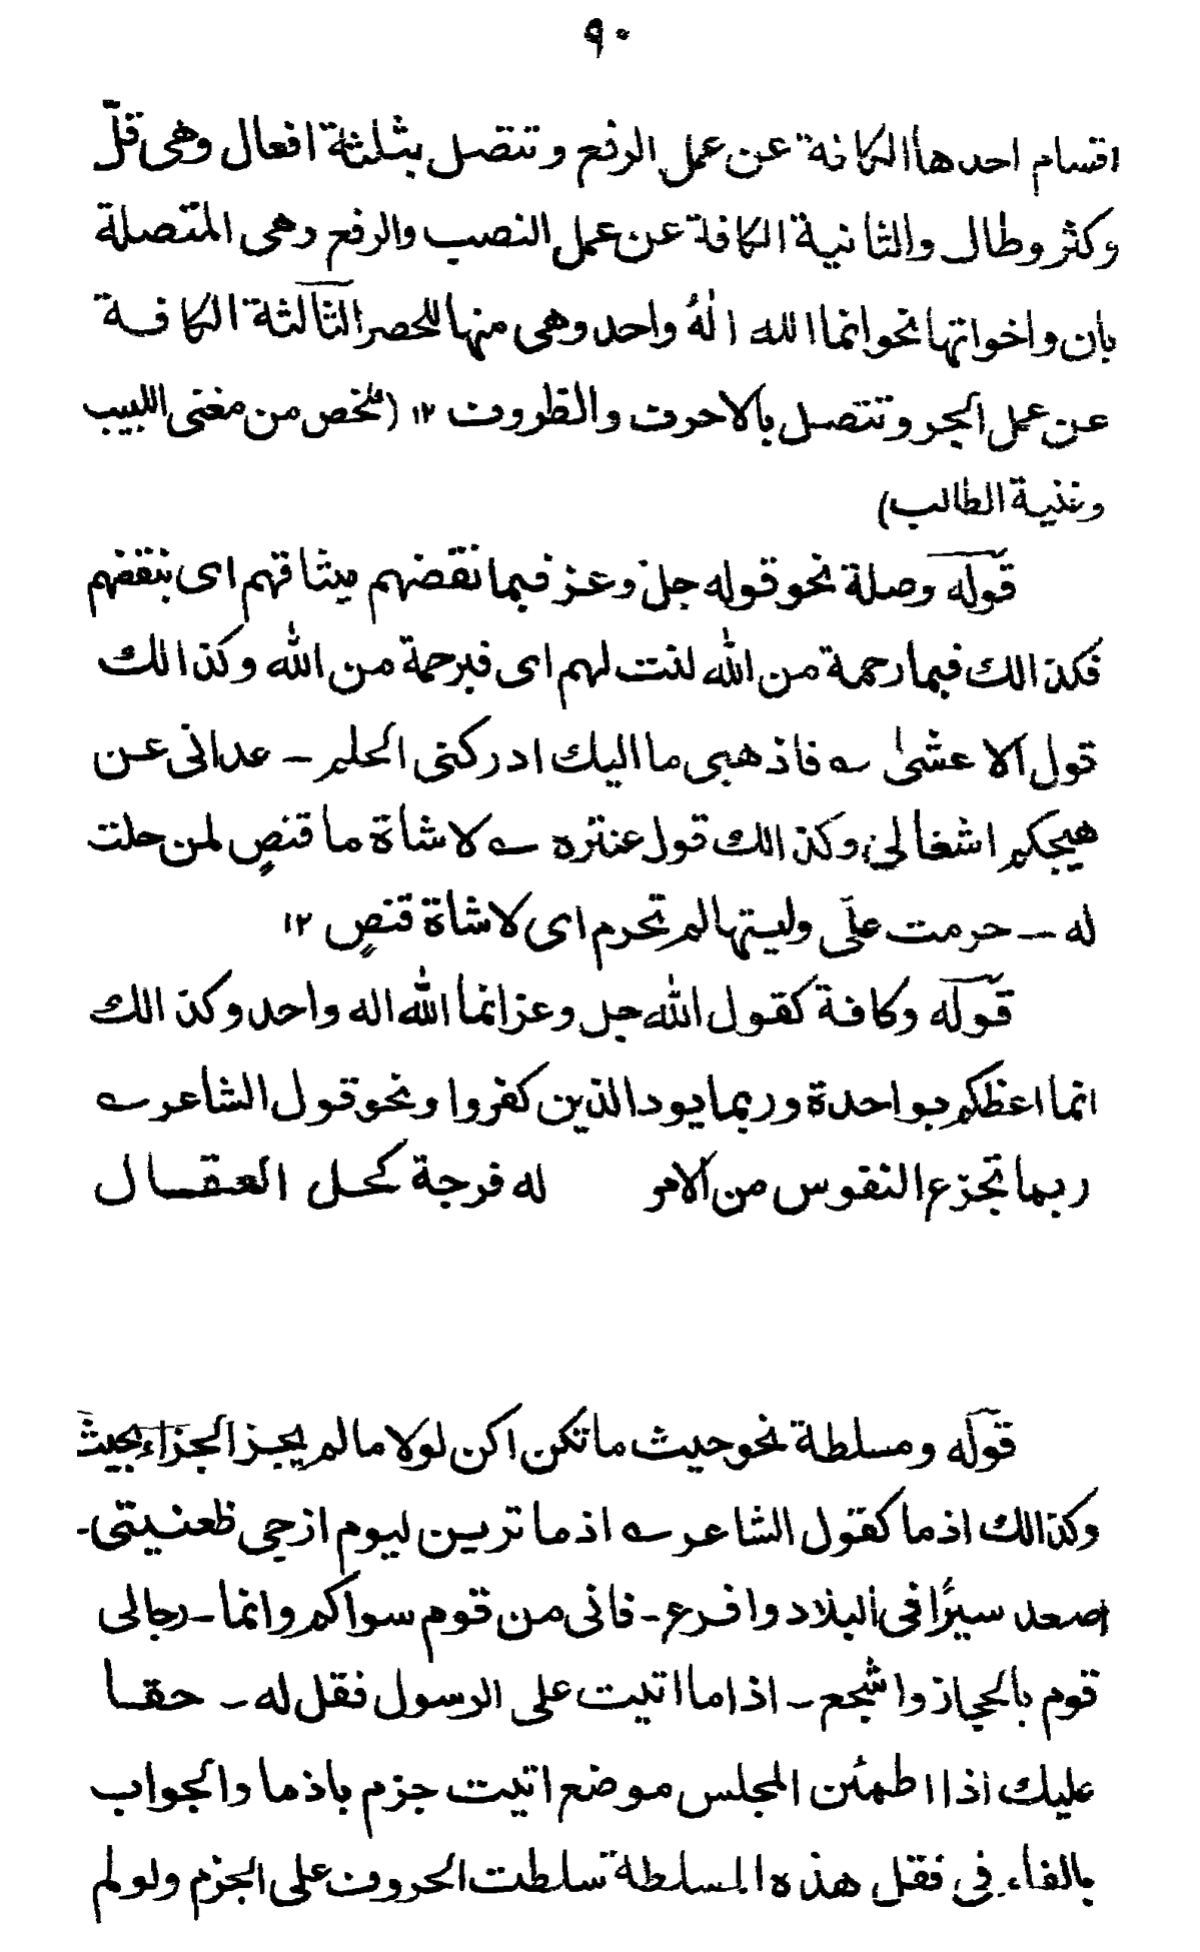 ٩٠
اقسام احدها الكافة عن عمل الرفع وتتصل بثلثة افعال وهى قلّ
وكثر وطال والثانية الكافة عن عمل النصب والرفع وهى المتصلة
بان واخواتها نحو انما الله الٰهُ واحد وهى منها للحصر الثالثة الكافـة
عن عمل الجر وتتصل بالاحرف والظروف ١٢ (ملخص من مغنى اللبيب
وغنية الطالب)
قوله وصلة نحو قوله جل وعز فبما نقضهم ميثاقهم اى بنقضهم
فكذالك فبما رحمة من الله لنت لهم اى فبرحمة من الله وكذالك
قول الاعشىٰ ؎ فاذهبى ما اليك ادركنى الحلم – عدانى عن
هيجكم اشغالى وكذالك قول عنتره ؎ لا شاة ما قنصٍ لمن حلت
له – حرمت علَى وليتها لم تحرم اى لا شاة قنصٍ ١٢
قوله وكافة كقول الله جل وعز انما الله اله واحد وكذالك
انما اعظكم بواحدة وربما يود الذين كفروا ونحو قول الشاعر ؎
ربما تجزع النفوس من الامر له فرجة كحل العقال
قوله ومسلطة نحو حيث ما تكن اكن لولا ما لم يجز الجزاء بحيث
وكذالك اذ ما كقول الشاعر ؎ اذ ما ترين ليوم ازجى ظعنيتى -
اصعد سيرًا فى البلاد وافرع - فانى من قوم سواكم وانما - رجالى
قوم بالحجاز واشجع - اذ اما اتيت على الرسول فقل له - حقا
عليك اذا اطمئن المجلس موضع اتيت جزم باذما والجواب
بالفاء فى فقل هذه المسلطة سلطت الحروف على الجزم ولولم